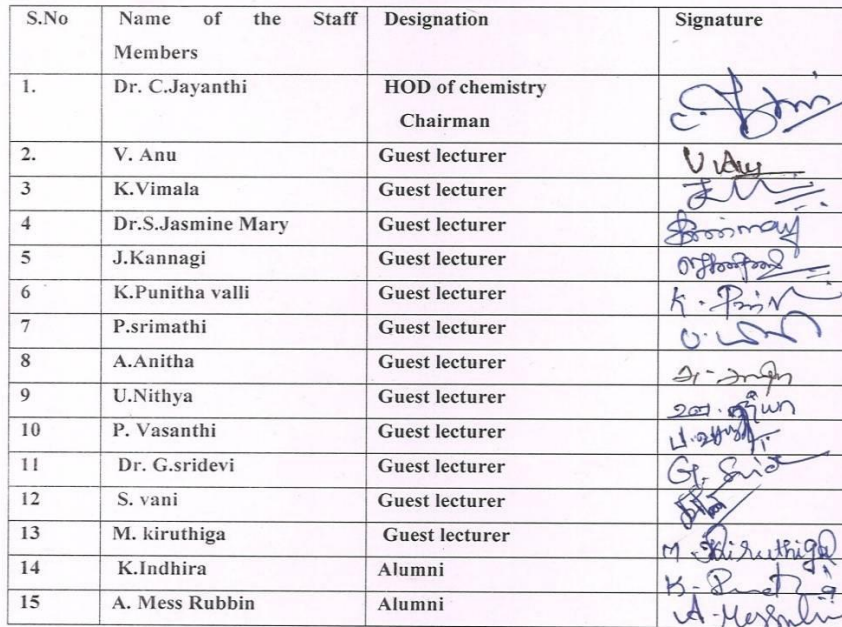 S.No Name of the Staff Designation Signature
Members
1. Dr. C.Jayanthi HOD of chemistry
Chairman
2. V. Anu Guest lecturer
3 K.Vimala Guest lecturer
4 Dr.S.Jasmine Mary Guest lecturer
5 J.Kannagi Guest lecturer
6 K.Punitha valli Guest lecturer
7 P.srimathi Guest lecturer
8 A.Anitha Guest lecturer
9 U.Nithya Guest lecturer
10 P. Vasanthi Guest lecturer
11 Dr. G.sridevi Guest lecturer
12 S. vani Guest lecturer
13 M. kiruthiga Guest lecturer M. Kiruthiga
14 K.Indhira Alumni
15 A. Mess Rubbin Alumni